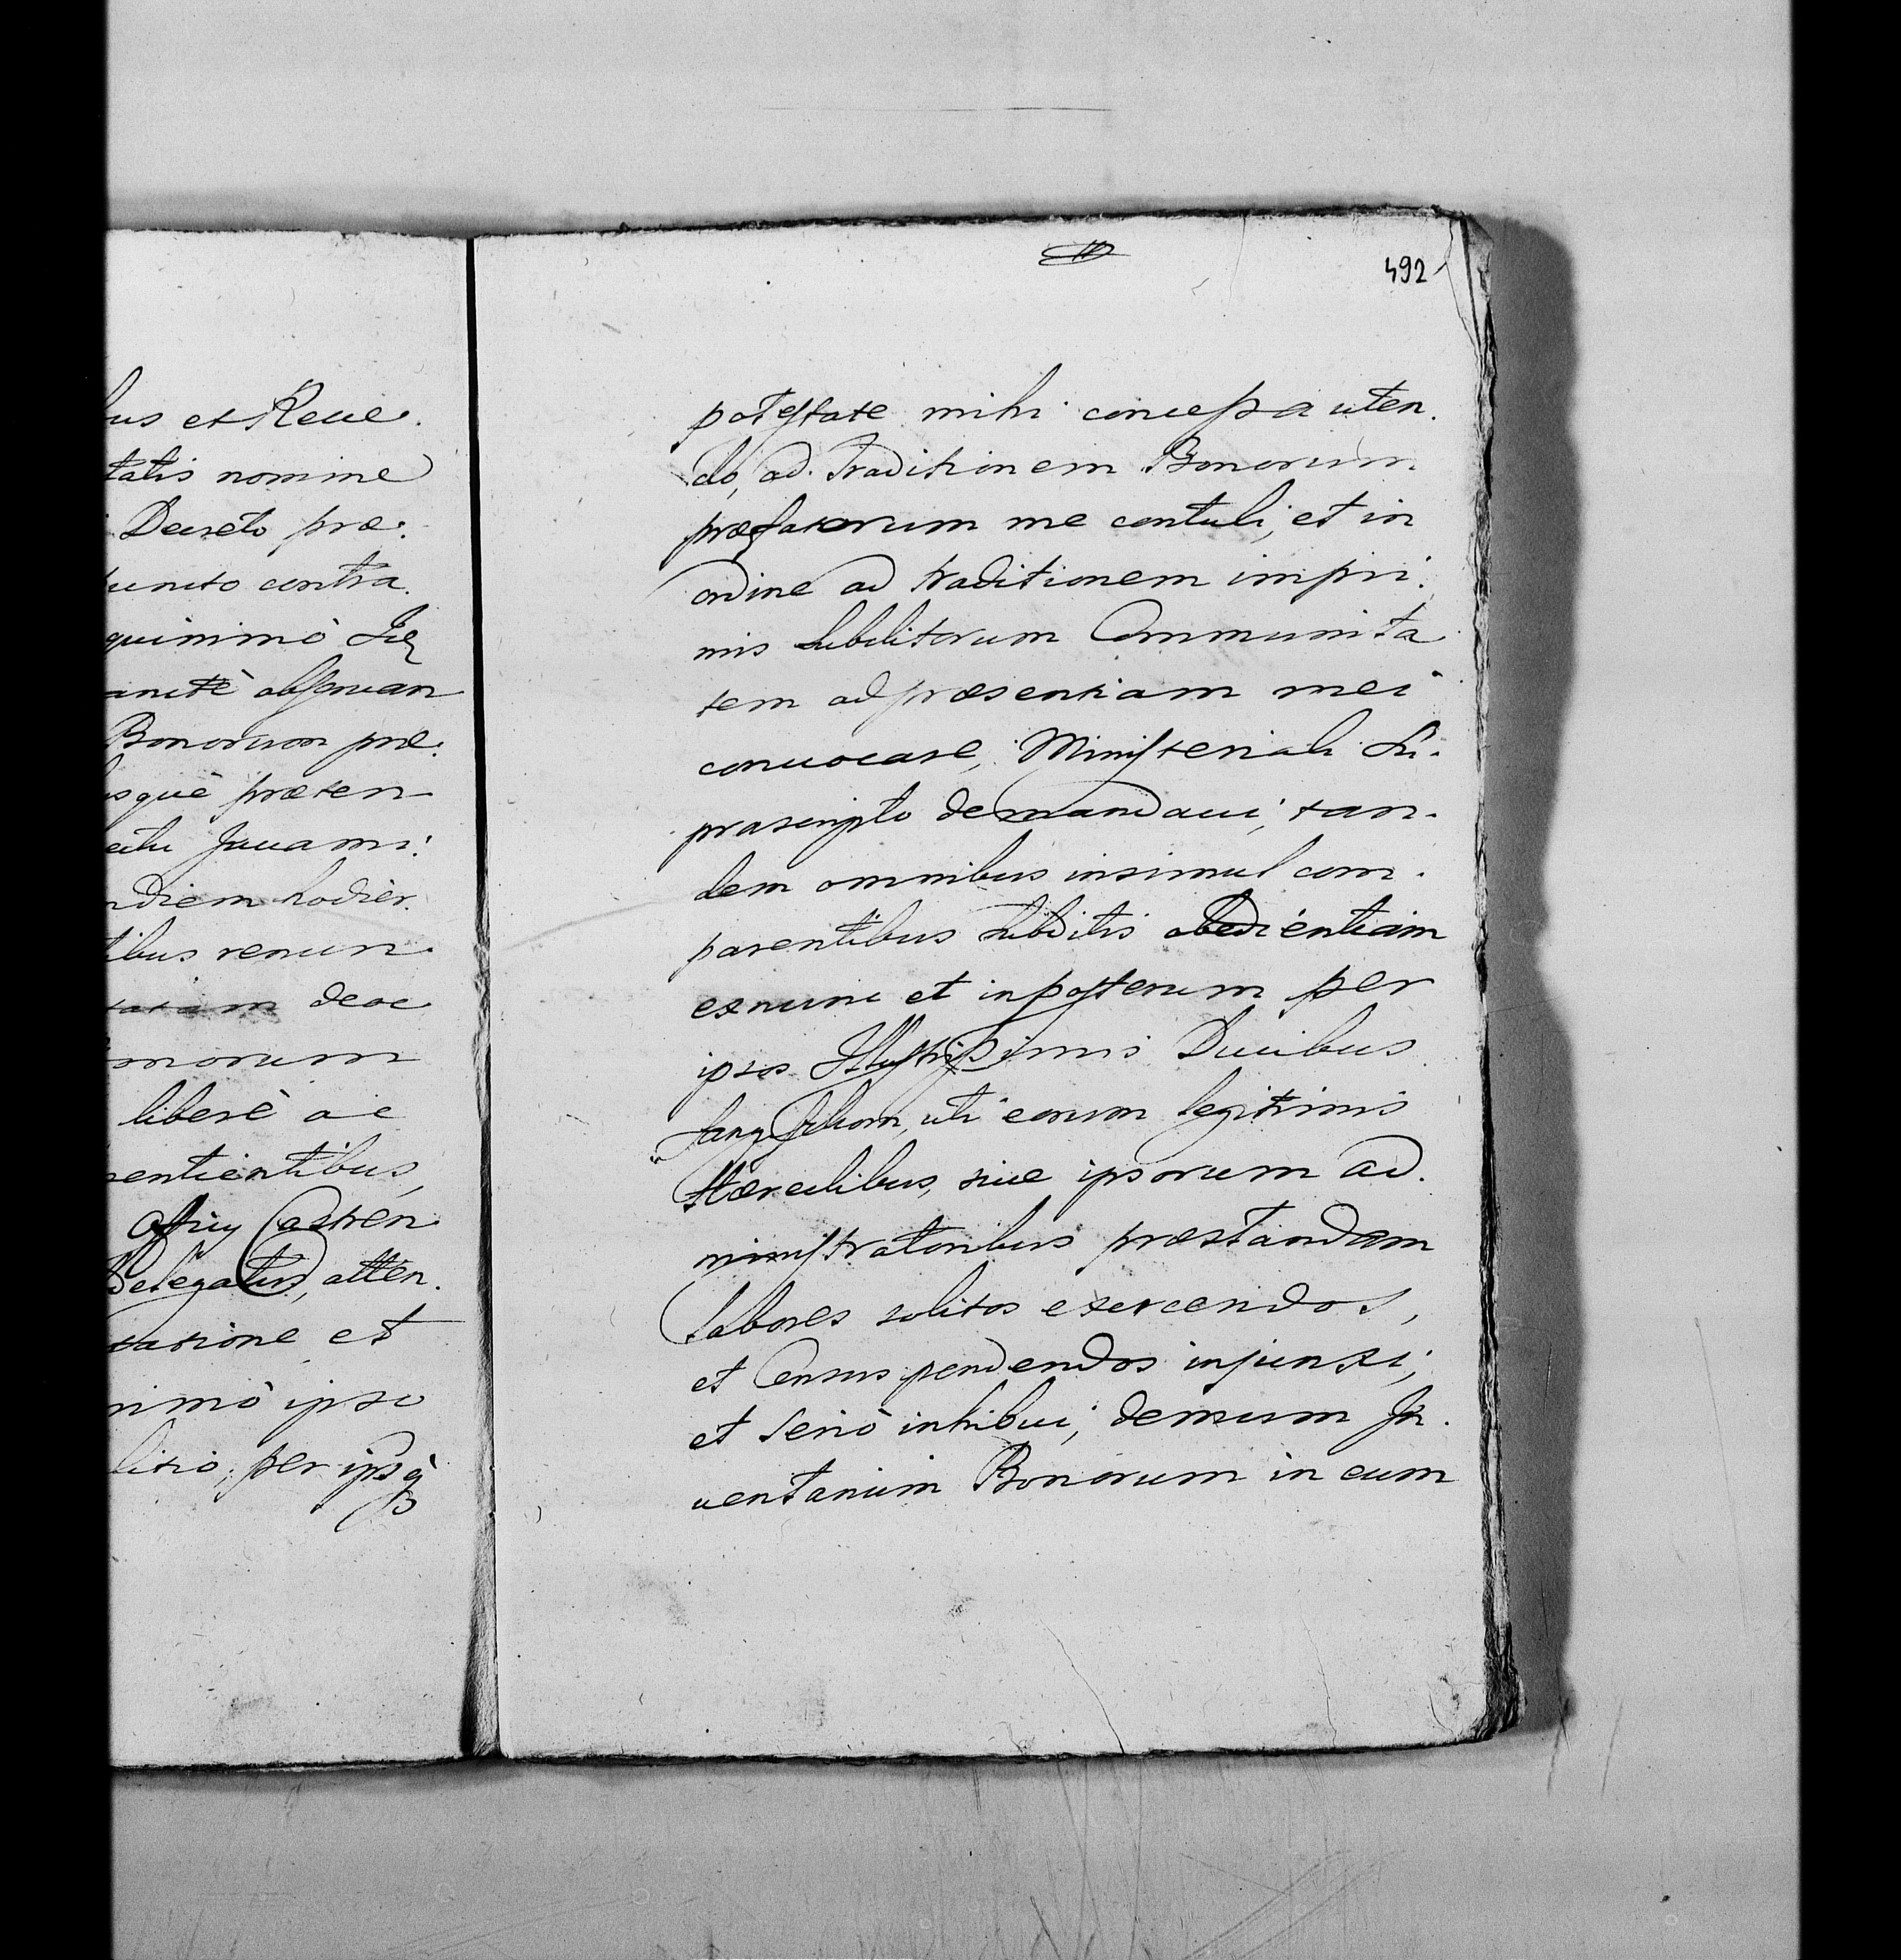 bus et Reve.
tatis nomine
Decreto præ:
contra.
quinimò
Bonorum præ:
præten
diem hodier.
tibus renun
deoc
liberè ac
sentientibus,
Officy Castren
Delegatus, atten.
et
nimò ipso
per
492
potestate mihi concessa uten.
do, ad Traditionem Bonorum
præfatorum me contuli, et in
ordine ad traditionem impri.
mis Subditorum Communita
tem ad præsentiam mei
conuocare, Ministeriali Su.
prascripto demandaui, tan.
dem omnibus insimul com.
parentibus Subditis obedientiam
exnunc et inposterum per
ipsos Illustrissimis Ducibus
uti eorum legitimis
Hæredibus, siue ipsorum ad.
ministratoribus præstandam
Labores solitos exercendos,
et Census pendendos injunxi,
et Seriò inhibui, demum In.
uentarium Bonorum in eum